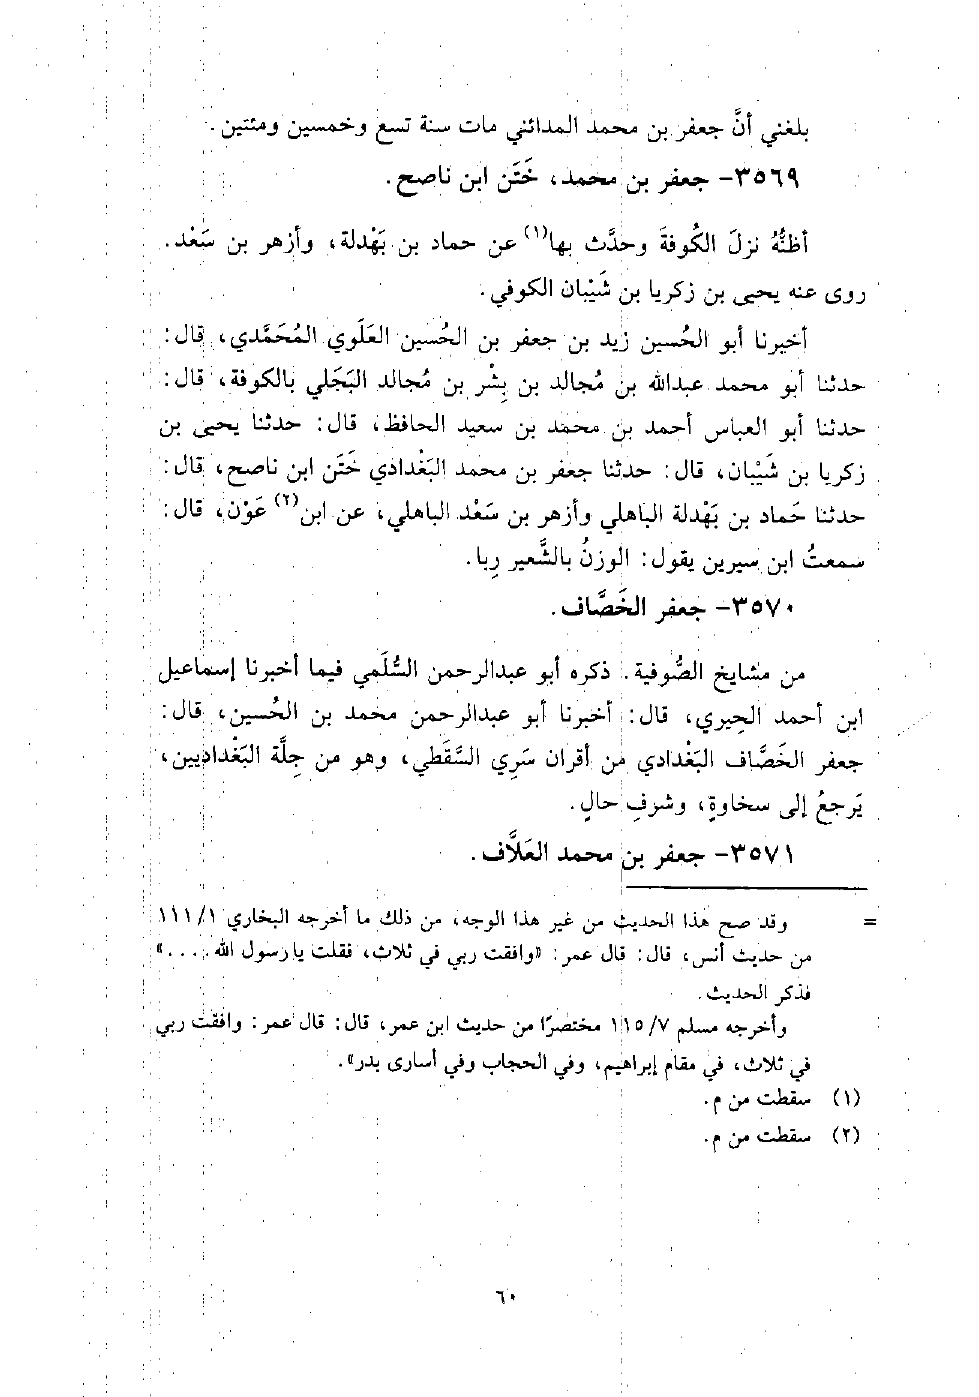 بلغني أنَّ جعفر بن محمد المدائني مات سنة تسع وخمسين ومئتين.
٣٥٦٩- جعفر بن محمد، خَتَن ابن ناصح.
أظنُّهُ نزلَ الكُوفةَ وحدَّث بها(١) عن حماد بن بَهْدلة، وأزهر بن سَعْد.
روى عنه يحيى بن زكريا بن شَيْبان الكوفي.
أخبرنا أبو الحُسين زيد بن جعفر بن الحُسين العَلَوي المُحَمَّدي، قال:
حدثنا أبو محمد عبدالله بن مُجالد بن بِشْر بن مُجالد البَجَلي بالكوفة، قال:
حدثنا أبو العباس أحمد بن محمد بن سعيد الحافظ، قال: حدثنا يحيى بن
زكريا بن شَيْبان، قال: حدثنا جعفر بن محمد البَغْدادي خَتَن ابن ناصح، قال:
حدثنا حَماد بن بَهْدلة الباهلي وأزهر بن سَعْد الباهلي، عن ابن(٢) عَوْن، قال:
سمعتُ ابن سيرين يقول: الوزنُ بالشَّعير رِبا.
٣٥٧٠- جعفر الخَصَّاف.
من مشايخ الصُّوفية. ذكره أبو عبدالرحمن السُّلَمي فيما أخبرنا إسماعيل
ابن أحمد الحِيري، قال: أخبرنا أبو عبدالرحمن محمد بن الحُسين، قال:
جعفر الخَصَّاف البَغْدادي من أقران سَرِي السَّقَطي، وهو من جِلَّة البَغْداديين،
يَرجعُ إلى سخاوةٍ، وشرفِ حالٍ.
٣٥٧١- جعفر بن محمد العَلَّاف.
= وقد صح هذا الحديث من غير هذا الوجه، من ذلك ما أخرجه البخاري ١/ ١١١
من حديث أنس، قال: قال عمر: «وافقت ربي في ثلاث، فقلت يا رسول الله ....»
فذكر الحديث.
وأخرجه مسلم ٧/ ١١٥ مختصرًا من حديث ابن عمر، قال: قال عمر: وافقت ربي
في ثلاث، في مقام إبراهيم، وفي الحجاب وفي أسارى بدر».
(١) سقطت من م.
(٢) سقطت من م.
٦٠